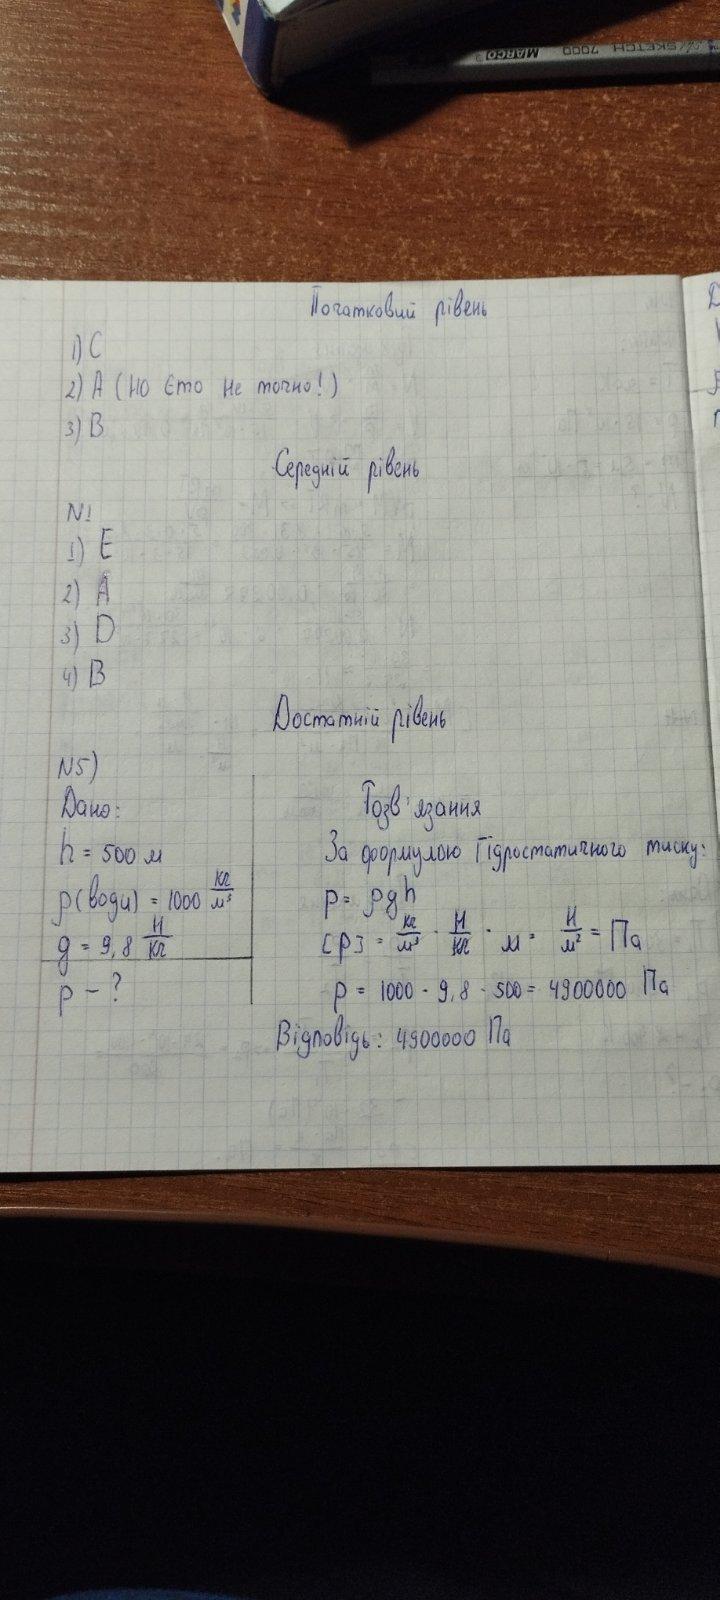 SKETCH 7000 MARCO
Початковий рівень
1) C
2) A (но єто не точно!)
3) B
Середній рівень
N1
1) E
2) A
3) D
4) B
Достатній рівень
N5)
Дано:
h = 500 м
ρ(води) = 1000 кг/м³
g = 9,8 Н/кг
p - ?
Розв'язання
За формулою Гідростатичного тиску:
p = ρgh
[p] = кг/м³ · Н/кг · м = Н/м² = Па
p = 1000 · 9,8 · 500 = 4900000 Па
Відповідь: 4900000 Па